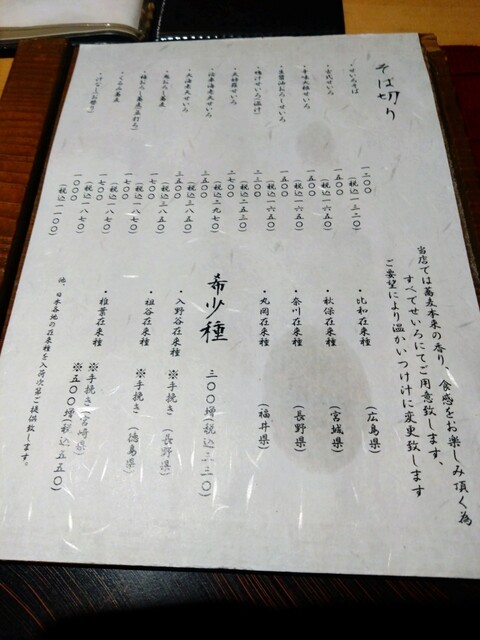 そば切り
・せいろそば 一二〇〇 (税込一三二〇)
・古代せいろ 一五〇〇 (税込一六五〇)
・辛味大根せいろ 一五〇〇 (税込一六五〇)
・生醤油おろしせいろ 一五〇〇 (税込一六五〇)
(温け)
・天種せいろ 二三〇〇 (税込二五三〇)
二七〇〇 (税込二九七〇)
・大海老天せいろ 三五〇〇 (税込三八五〇)
三五〇〇 (税込三八五〇)
一七〇〇 (税込一八七〇)
一七〇〇 (税込一八七〇)
・くるみ蕎麦
一〇〇〇 (税込一一〇〇)
当店では蕎麦本来の香り、食感をお楽しみ頂く為
すべてせいろにてご用意致します、
ご要望により温かいつけ汁に変更致します
・比和在来種 (広島県)
・秋保在来種 (宮城県)
・奈川在来種 (長野県)
・丸岡在来種 (福井県)
希少種 三〇〇増(税込三三〇)
・入野谷在来種 ※手挽き(長野県)
・祖谷在来種 ※手挽き(徳島県)
・椎葉在来種 ※手挽き(宮崎県)
※五〇〇増(税込五五〇)
他、日本各地の在来種を入荷次第ご提供致します。